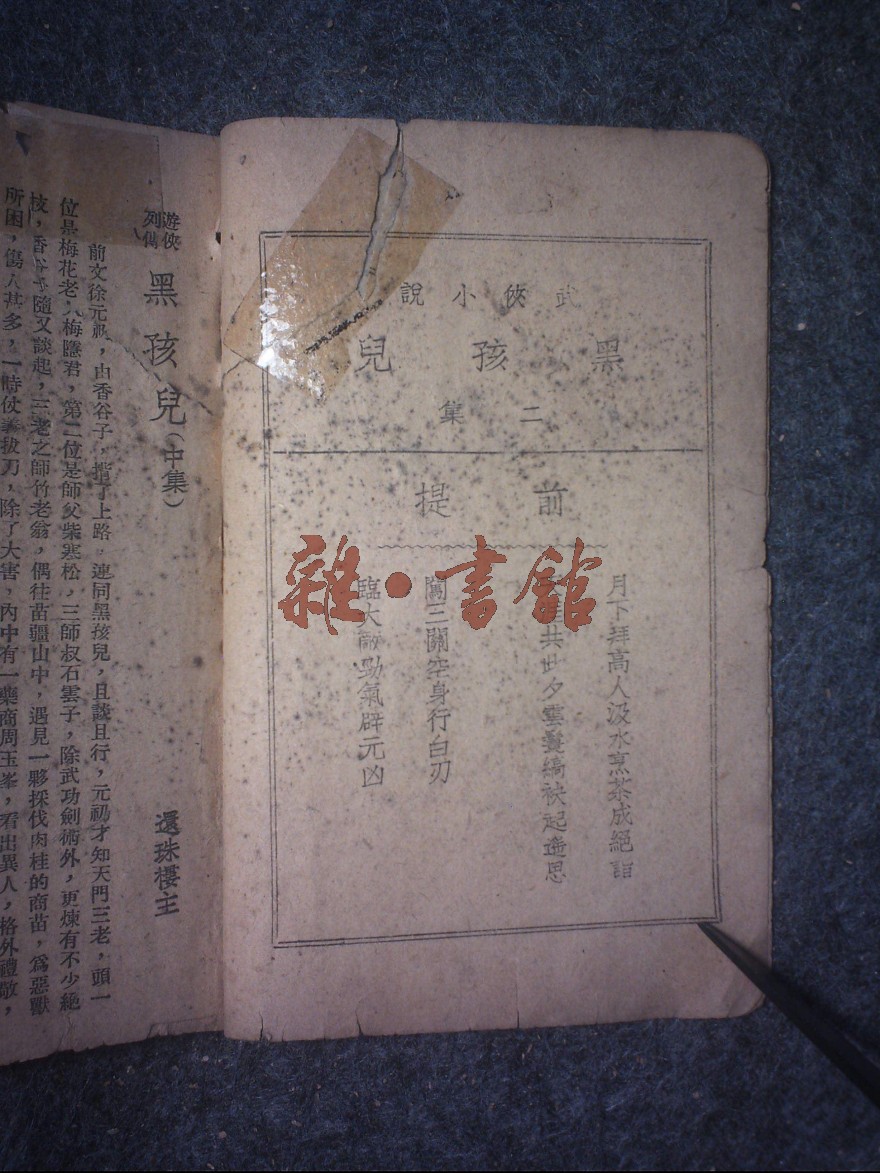 武俠小說
黑孩兒
二集
前提
月下拜高人汲水烹茶成絕詣
共世夕雲鬟縞袂起遙思
闖三關空身行白刃
臨大敵勁氣辟元凶
雜・書館
遊俠列傳
黑孩兒(中集)
還珠樓主
前文徐元礽,由香谷子,揹了上路,連同黑孩兒,且談且行,元礽才知天門三老,頭一
位是梅花老人梅隱君,第二位是師父柴寒松,三師叔石雲子,除武功劍術外,更煉有不少絕
技,香谷子隨又談起,三老之師竹老翁,偶往苗疆山中,遇見一夥採伐肉桂的商苗,爲惡獸
所困,傷人甚多,一時仗義拔刀,除了大害,內中有一藥商周玉峯,看出異人,格外禮敬,